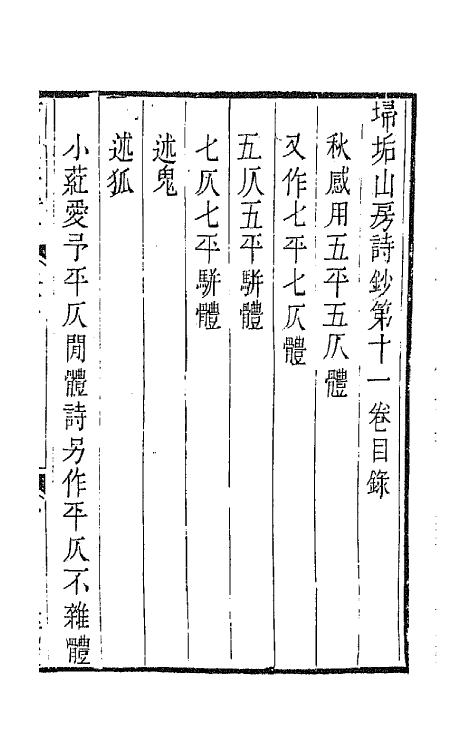 埽垢山房詩鈔第十一卷目錄
秋感用五平五仄體
又作七平七仄體
五仄五平駢體
七仄七平駢體
述鬼
述狐
小莊愛予平仄閒體詩另作平仄不雜體